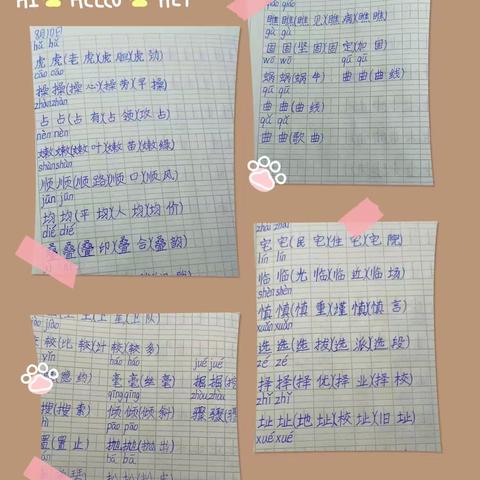 HI HELLO HEY
8月10日
hǔ hǔ
虎虎(老虎)(虎胆)(虎劲)
cāo cāo
操操(操心)(操劳)(早操)
zhàn zhàn
占占(占有)(占领)(攻占)
nèn nèn
嫩嫩(嫩叶)(嫩苗)(嫩绿)
shùn shùn
顺顺(顺路)(顺口)(顺风)
jūn jūn
均均(平均)(人均)(均价)
dié dié
叠叠(叠印)(叠合)(叠韵)
瞧瞧(瞧见)(瞧病)(瞧瞧)
gù gù
固固(坚固)(固定)(加固)
wō wō
蜗蜗(蜗牛)
qū qū
曲曲(曲线)
qū qū
曲曲(曲线)
qǔ qǔ
曲曲(歌曲)
(卫星)(卫队)
jiào
较(比较)(计较)(较多)
yīn
háo háo
毫毫(丝毫)
jué jué
搜(搜索)
qīng qīng
倾倾(倾斜)
zhòu zhòu
骤骤
置(置止)
pāo pāo
抛抛(抛出)
bā bā
zhái zhái
宅宅(民宅)(住宅)(宅院)
lín lín
临临(光临)(临近)(临场)
shèn shèn
慎慎(慎重)(谨慎)(慎言)
xuǎn xuǎn
选选(选拔)(选派)(选段)
zé zé
择择(择优)(择业)(择校)
zhǐ zhǐ
址址(地址)(校址)(旧址)
xué xué